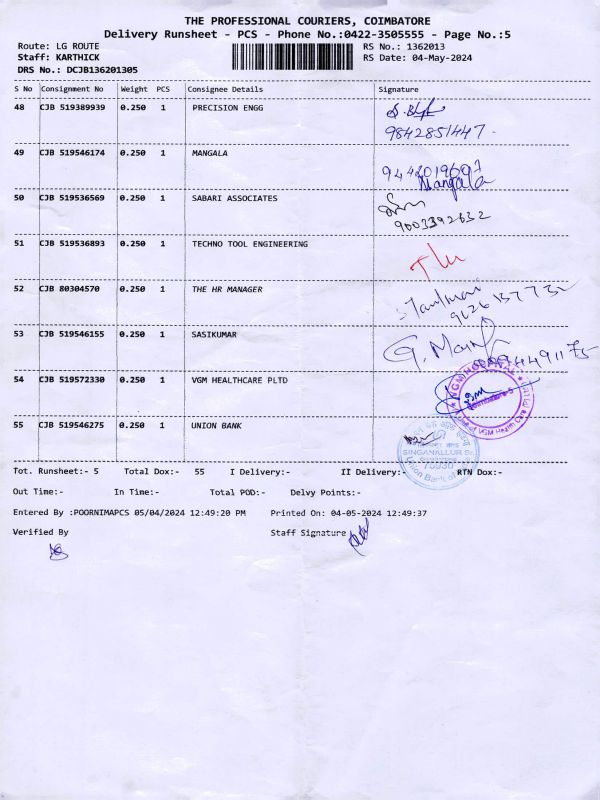 THE PROFESSIONAL COURIERS, COIMBATORE
Delivery Runsheet - PCS - Phone No.:0422-3505555 - Page No.:5
Route: LG ROUTE
RS No.: 1362013
Staff: KARTHICK
RS Date: 04-May-2024
DRS No.: DCJB136201305
S No Consignment No Weight PCS Consignee Details Signature
48 CJB 519389939 0.250 1 PRECISION ENGG
9842851447.
49 CJB 519546174 0.250 1 MANGALA
Mangala
50 CJB 519536569 0.250 1 SABARI ASSOCIATES
9003392632
51 CJB 519536893 0.250 1 TECHNO TOOL ENGINEERING
52 CJB 80304570 1 THE HR MANAGER
53 CJB 519546155 0.250 1 SASIKUMAR
54 CJB 519572330 0.250 1 VGM HEALTHCARE PLTD
VGM HOSPITAL
Coimbatore-5
55 CJB 519546275 0.250 1 UNION BANK
SINGANALLUR Br.
Union Bank of
Tot. Runsheet:- 5 Total Dox:- 55 I Delivery:- II Delivery:- RTN Dox:-
Out Time:- In Time:- Total POD:- Delvy Points:-
Entered By :POORNIMAPCS 05/04/2024 12:49:20 PM Printed On: 04-05-2024 12:49:37
Verified By Staff Signature